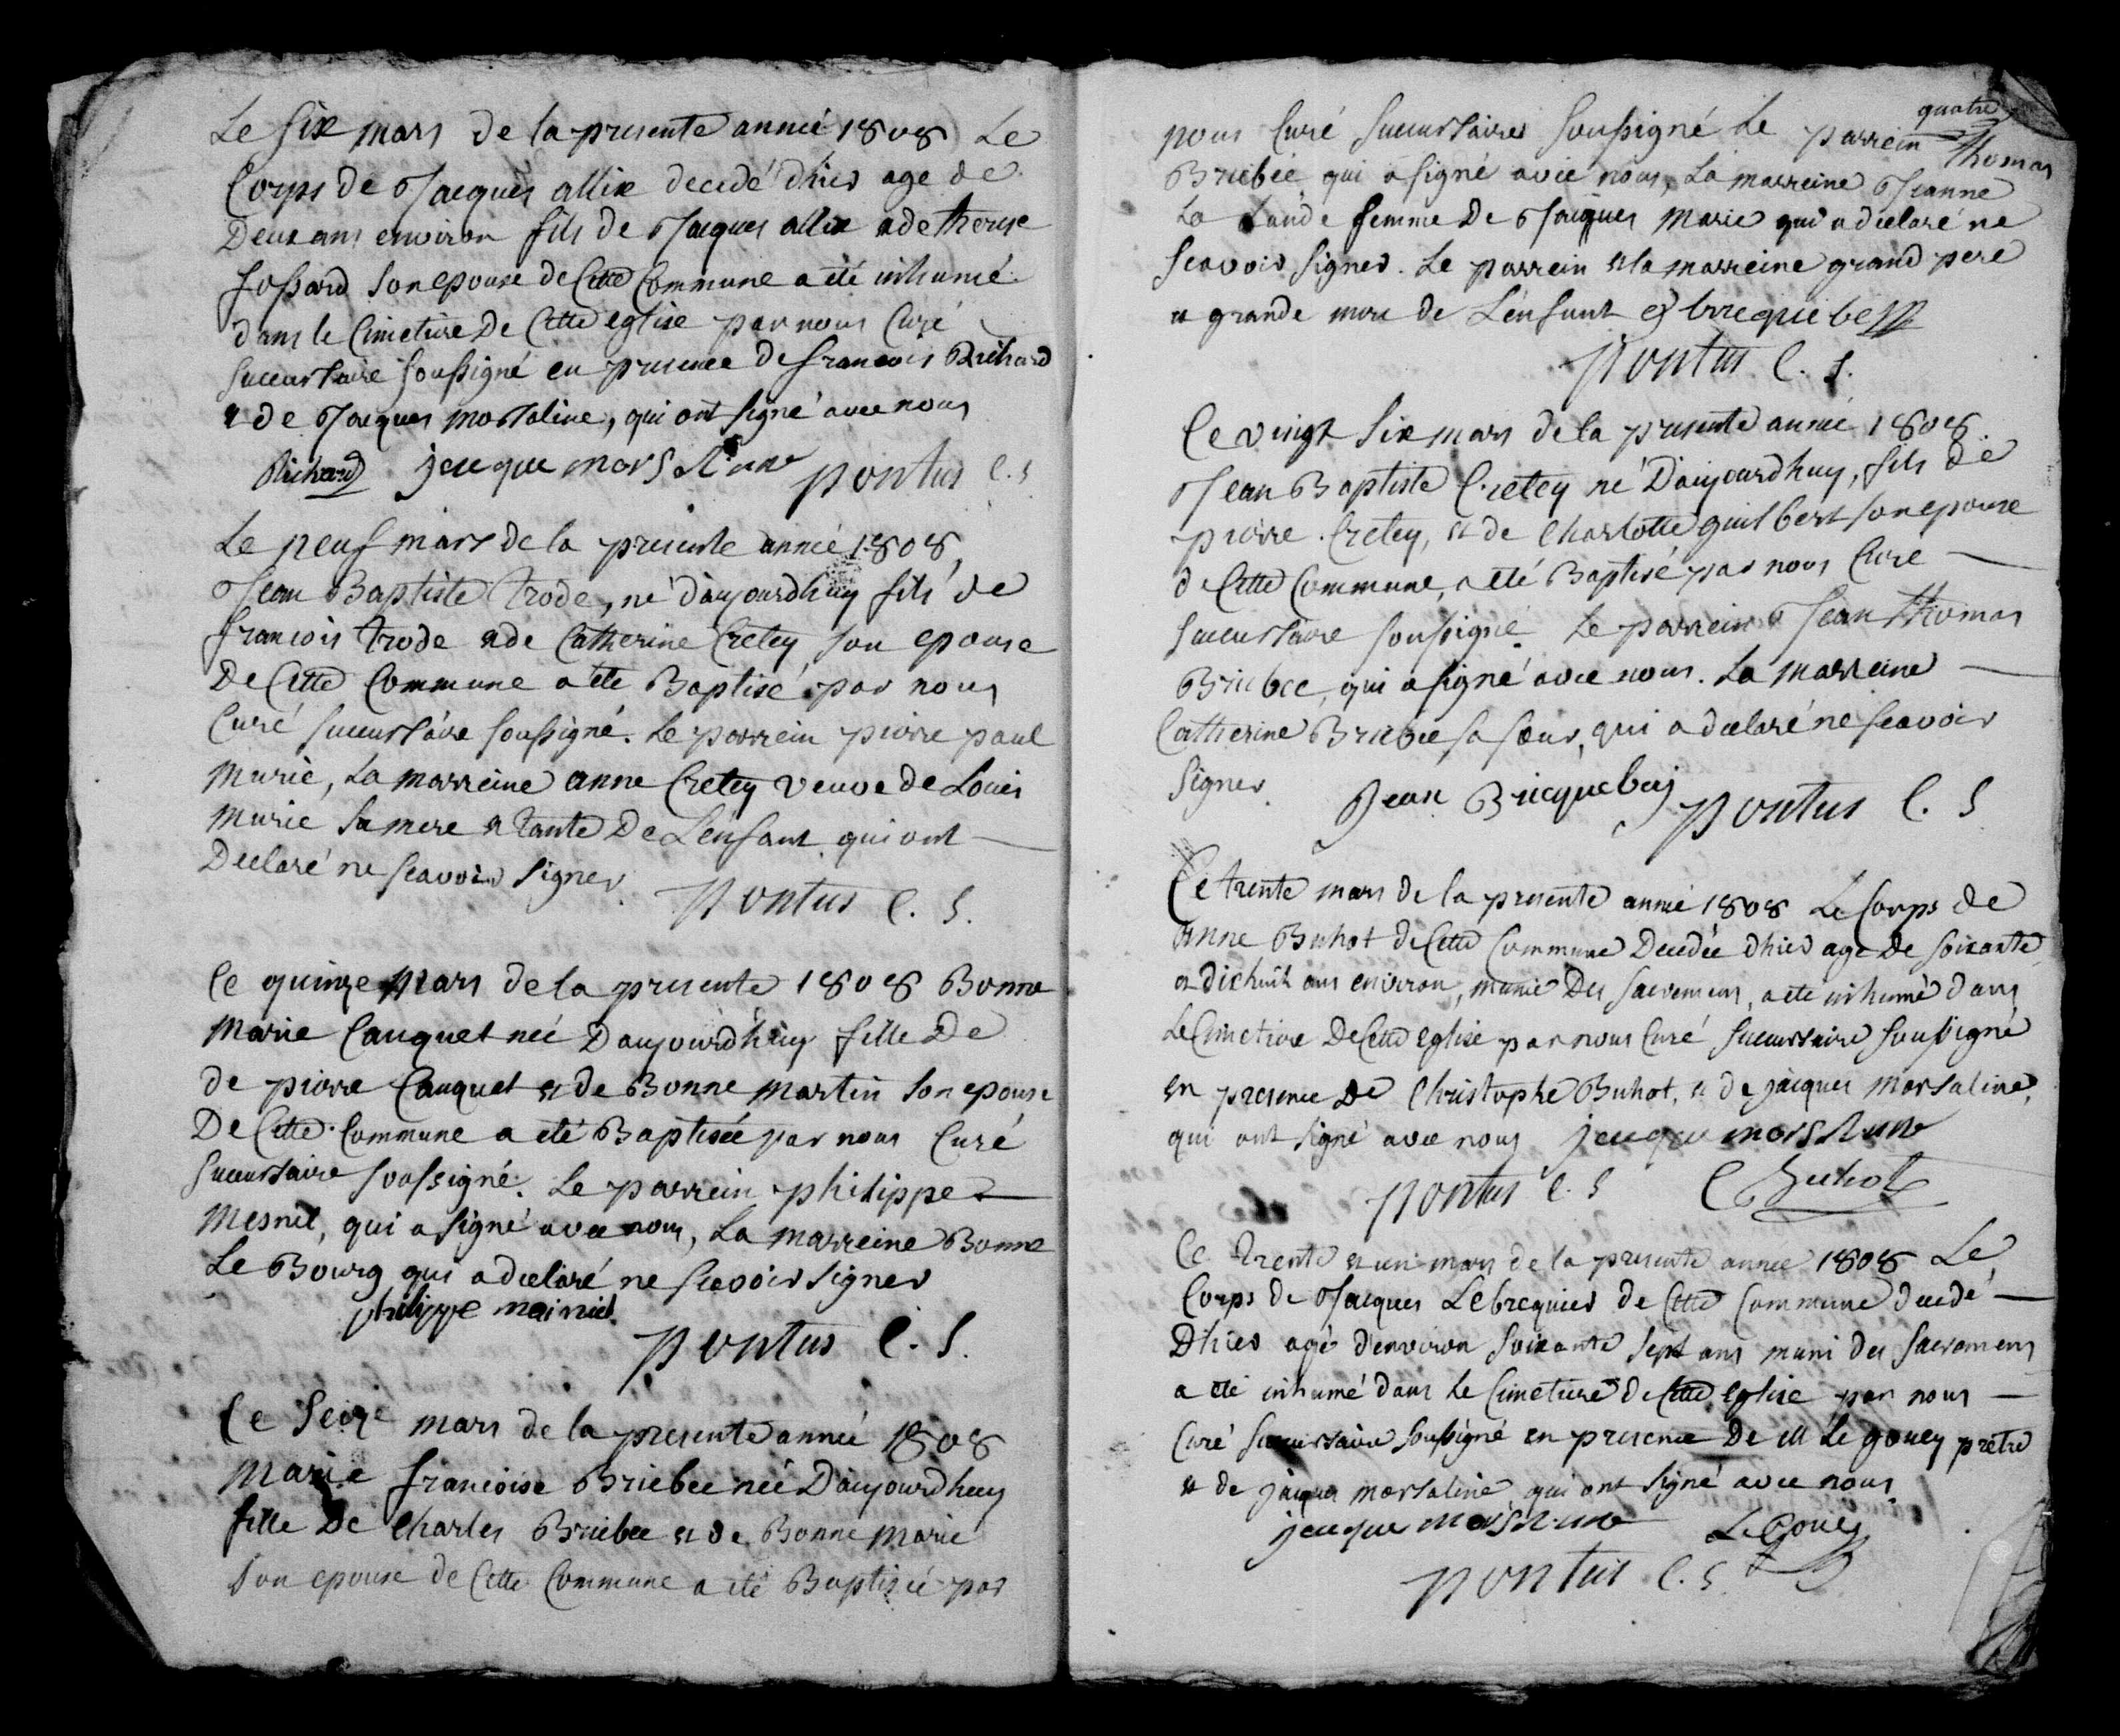 Le six mars de la presente anneé 1808 Le
Corps de Jacques allix decedé d'hier age de
Deux ans environ fils de Jacques allix et de therese
fossard son epouse de Cette Commune a été inhumé
dans le Cimetiere De Cette eglise par nous Curé
succursaire soussigné en presence de francois Richard
et de Jacques morsaline, qui ont signé avec nous
Richard jacque morsaline pontus C. S
Le neuf mars de la presente anneé 1808,
Jean Baptiste trode, né d'aujourdhuy fils de
francois trode et de Catherine Cretey son epouse
De Cette Commune a été Baptisé par nous
Curé succursaire soussigné. Le parrein pierre paul
Marie, La marreine anne Cretey veuve de Louis
Marie sa mere et tante De L'enfant qui ont
Declaré ne scavoir signer.
pontus C. S.
Ce quinze mars de la presente 1808 Bonne
Marie Cauquet neé D'aujourdhuy fille De
de pierre Cauquet et de Bonne Martin son epouse
De Cette Commune a eté Baptiseé par nous Curé
succursaire soussigné. Le parrein philippe
Mesnil, qui a signé avec nous, La marreine Bonne
Le Bourg qui a declaré ne scavoir signer
philippe mainiel
pontus C. S.
Ce seize mars de la presente anneé 1808
Marie francoise Briebec neé D'aujourdhuy
fille De Charles Briebec et de Bonne Marie
son epouse de Cette Commune a eté Baptiseé par
quatre
nous Curé succursaire soussigné Le parrein thomas
Briebec qui a signé avec nous, La marreine Jeanne
La Lande femme De Jacques Marie qui a declaré ne
scavoir signer. Le parrein et la marreine grand pere
et grande mere de L'enfant
pontus C. S.
Ce vingt six mars de la presente anneé 1808
Jean Baptiste Cretey né D'aujourdhuy, fils de
pierre Cretey, et de Charlotte guilbert son epouse
de Cette Commune, a eté Baptisé par nous Curé
succursaire soussigné. Le parrein Jean thomas
Briebec, qui a signé avec nous. La marreine
Catherine Briebec sa soeur, qui a declaré ne scavoir
signer.
Jean Bricquebec pontus C. S
Ce trente mars de la presente anneé 1808 Le Corps de
Anne Buhot de Cette Commune Decedée d'hier age de soixante
et dixhuit ans environ, munie Des sacremens, a eté inhumé dans
Le Cimetiere De Cette Eglise par nous Curé succursaire soussigné
en presence De Christophe Buhot, et de jacques Morsaline,
qui ont signé avec nous jacque morsaline
pontus C. S C Buhot
Ce trente et un mars de la presente année 1808 Le
Corps de Jacques Lebrequier de Cette Commune decedé
D'hier agé d'environ soixante sept ans muni des sacremens
a eté inhumé dans Le Cimetiere de Cette Eglise par nous
Curé succursaire soussigné en presence De M Le gouey pretre
et de jacques morsaline qui ont signé avec nous
jacque morsaline LeGouey
pontus C. S